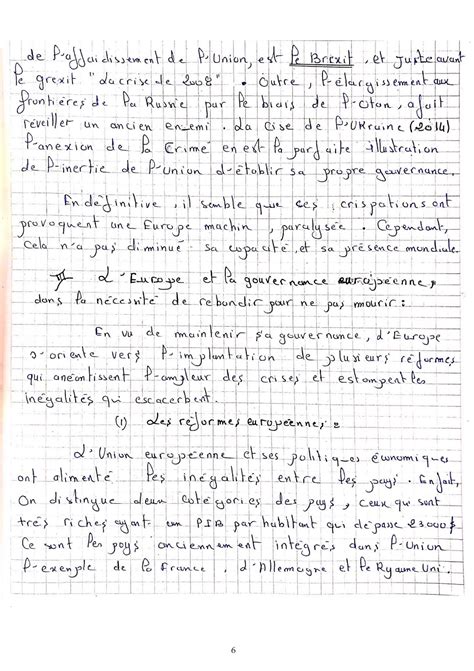 de l'affaidissement de l'Union, est le Brexit, et juste avant
le grexit "la crise de 2008". Outre, l'élargissement aux
frontières de la Russie par le biais de l'Otan, a fait
réveiller un ancien ennemi. La cise de l'Ukraine (2014)
l'anexion de la Crimé en est la parfaite illustration
de l'inertie de l'Union d'établir sa propre gouvernance.
En définitive, il semble que ces crispations ont
provoquent une Europe machin, paralysée. Cependant,
cela n'a pas diminué sa capacité, et sa présence mondiale.
L'Europe et la gouvernance européenne,
dans la nécessité de rebondir pour ne pas mourir :
En vu de maintenir sa gouvernance, l'Europe
s'oriente vers l'implantation de plusieurs réformes
qui anéantissent l'ampleur des crises et estampent les
inégalités qui escacerbent.
(1) Les réformes européennes :
L'Union européenne et ses politiques économiques
ont alimenté les inégalités entre les pays. En fait,
On distngue deux catégories des pays, ceux qui sont
très riches ayant un PIB par habitant qui dépasse 23000$
Ce sont les pays anciennement intégrés dans l'Union
l'exemple de la France, d'Allemagne et le Ryaume Uni.
6